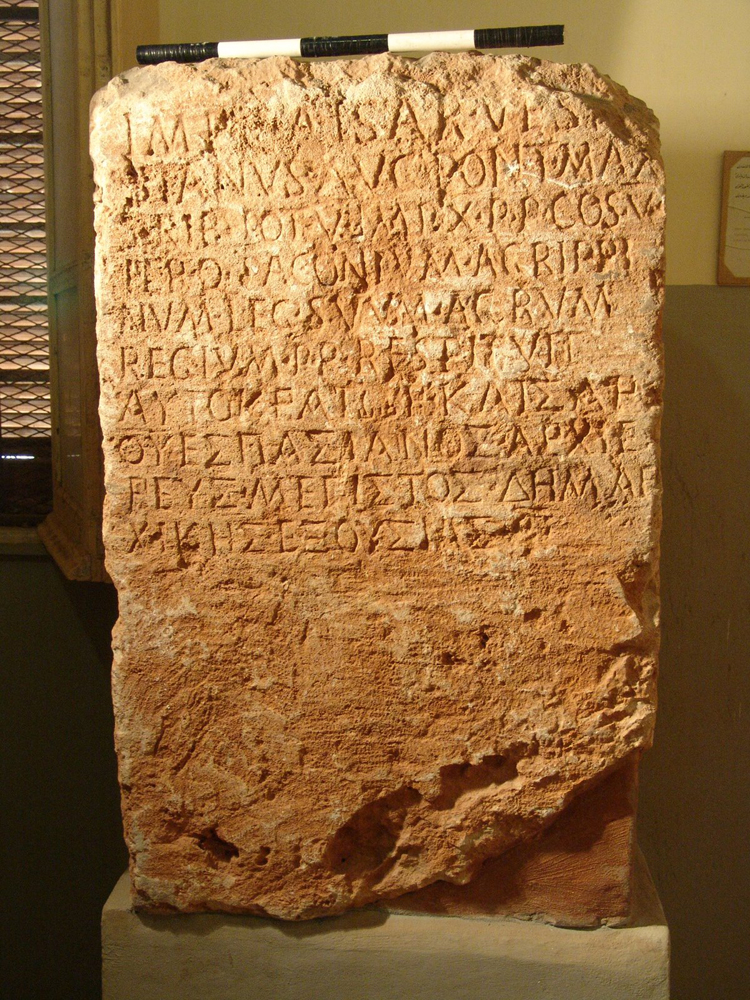 IMP·CAISAR·VES
PASIANVS·AVG·PONT·MAX
TRIB·POT·V·IMP·X·P·P·COS·V
PER·Q·PACONIVM·AGRIPPI
NVM·LEG·SVVM·AGRVM
REGIVM·P·R·RESTITVIT
ΑΥΤΟΚΡΑΤΩΡ·ΚΑΙΣΑΡ
ΟΥΕΣΠΑΣΙΑΝΟΣ·ΑΡΧΙΕ
ΡΕΥΣ·ΜΕΓΙΣΤΟΣ·ΔΗΜΑΡ
ΧΙΚΗΣ·ΕΞΟΥΣΙΑΣ